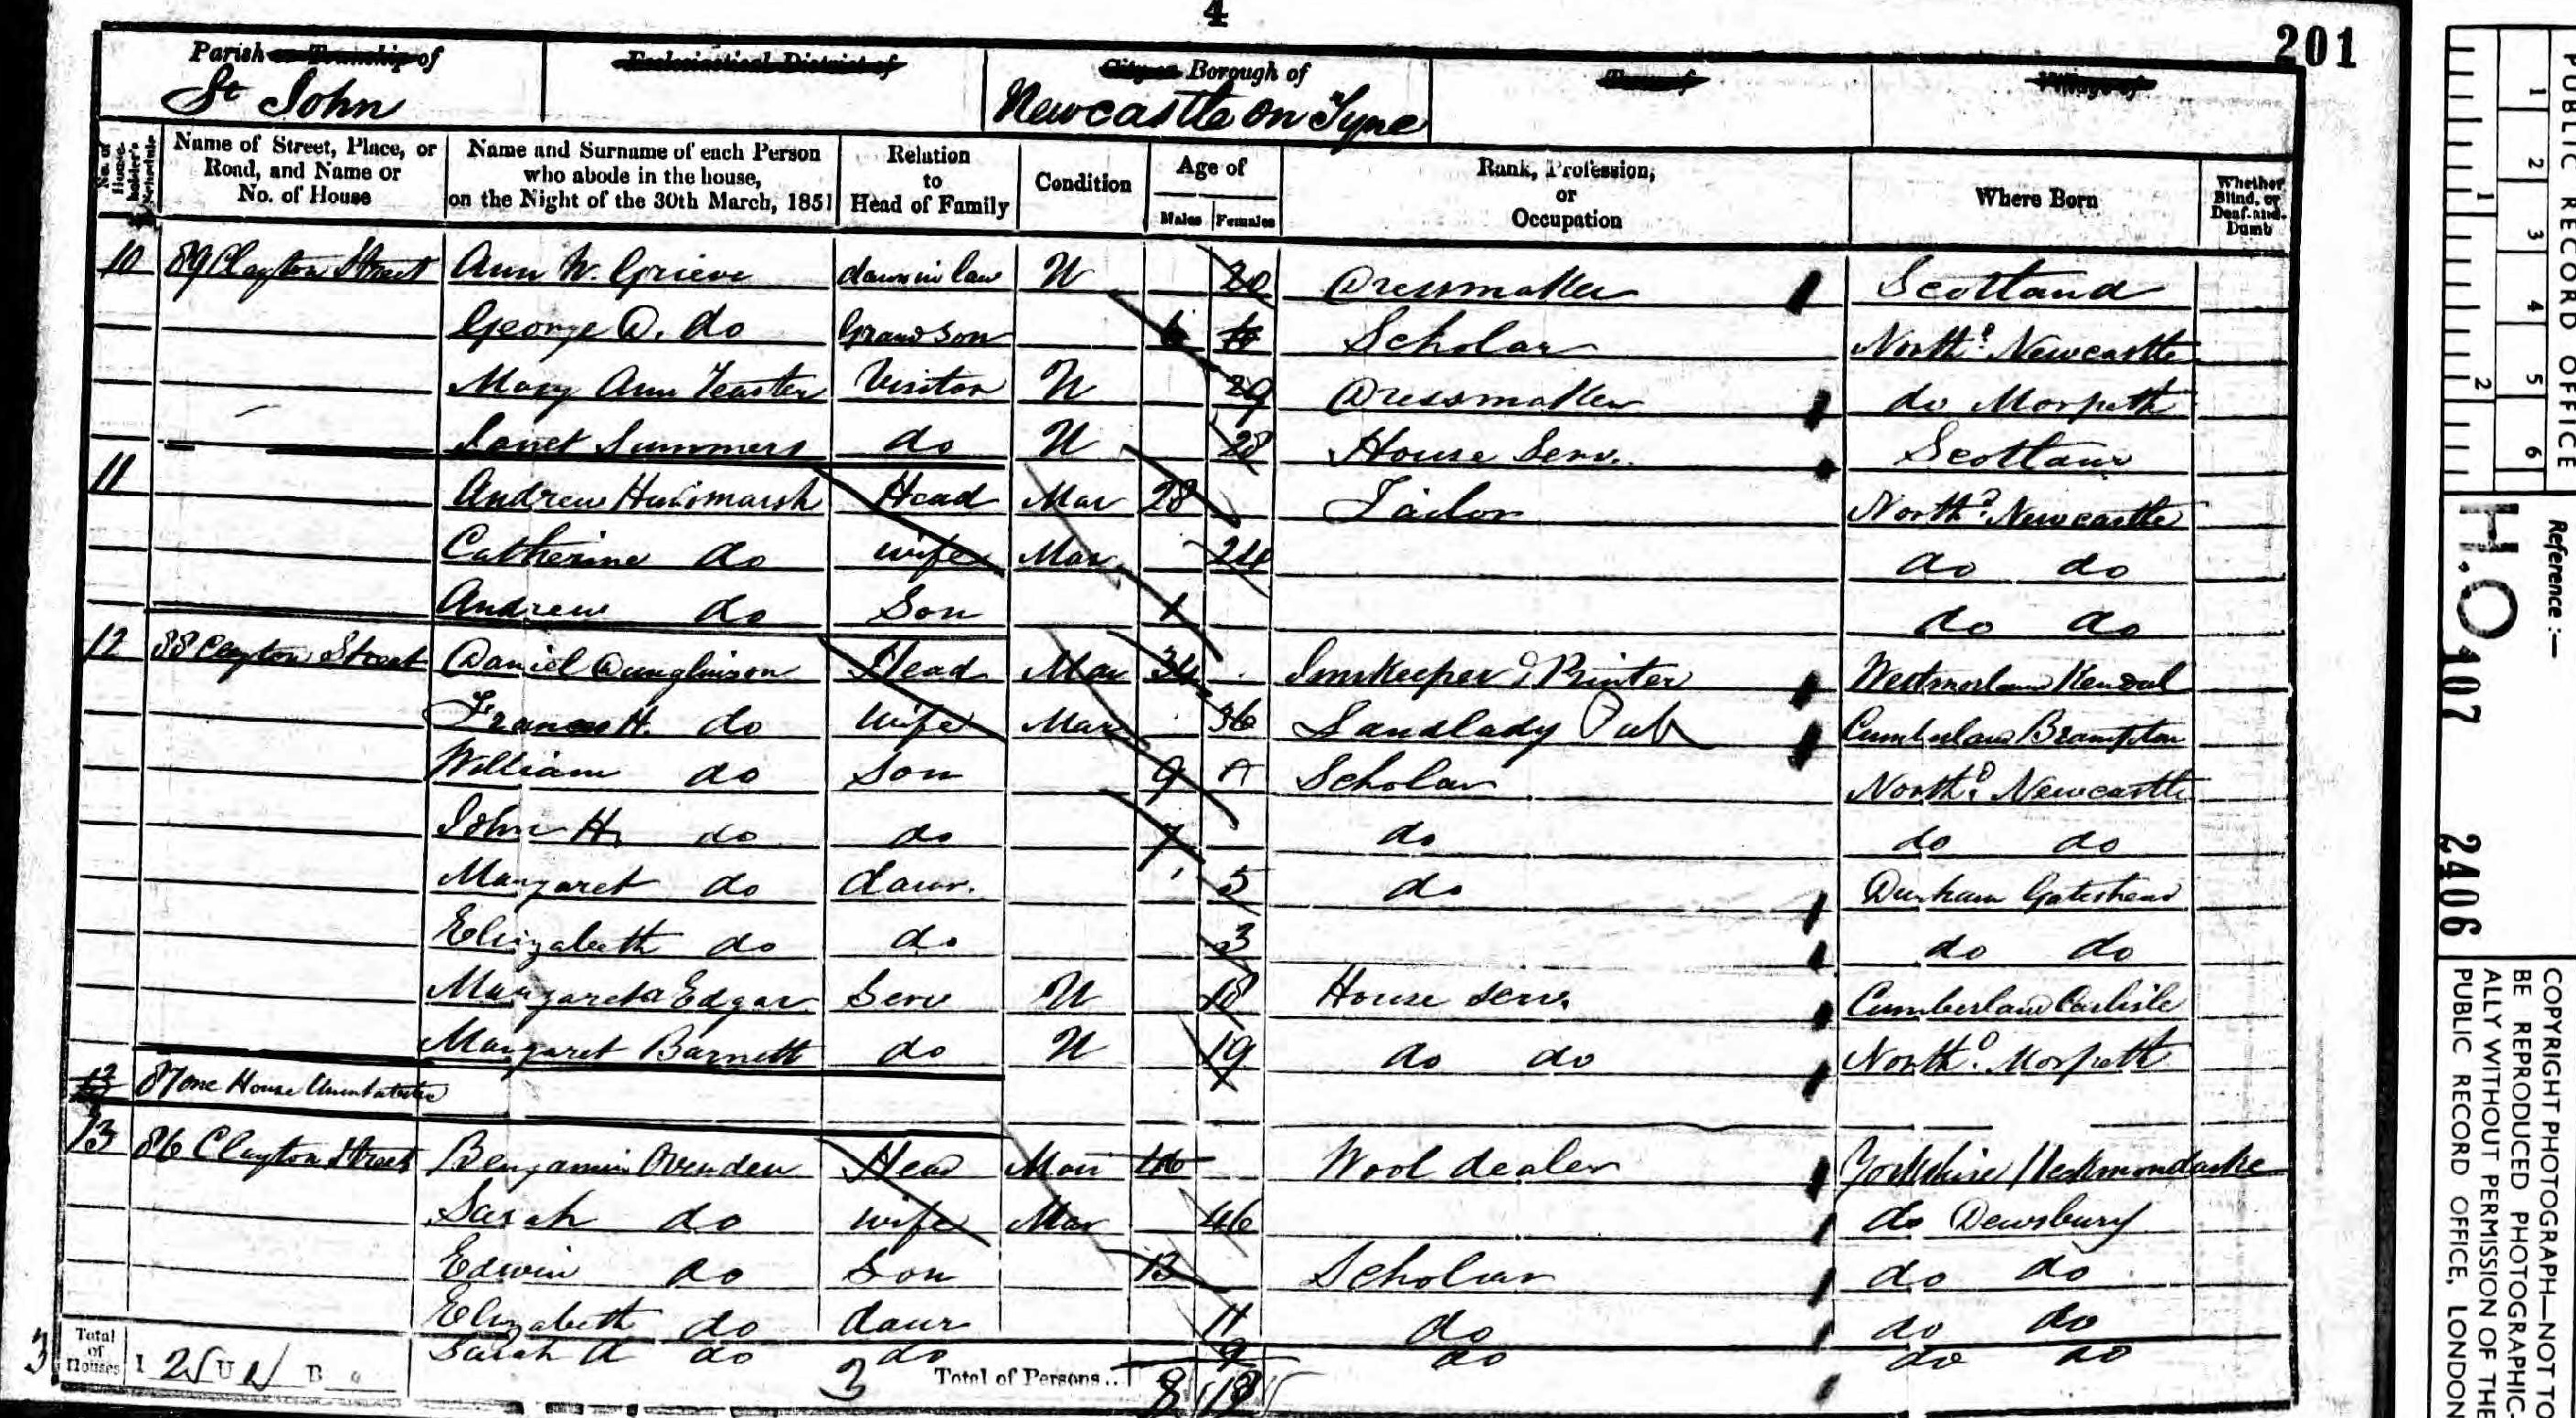 4
201
Parish or Township of
St John
Ecclesiastical District of
City or Borough of
Newcastle on Tyne
Town of
Village of
No. of House-holder's Schedule
Name of Street, Place, or Road, and Name or No. of House
Name and Surname of each Person who abode in the house, on the Night of the 30th March, 1851
Relation to Head of Family
Condition
Age of
Males
Females
Rank, Profession, or Occupation
Where Born
Whether Blind, or Deaf-and-Dumb
10 89 Clayton Street Ann W. Grieve daur in law U 20 Dressmaker Scotland
George D. do Grandson 6 Scholar Northd. Newcastle
Mary Ann Visitor U 29 Dressmaker do Morpeth
Janet Summers do U 28 House Serv. Scotland
11 Andrew Hindmarsh Head Mar 28 Tailor Northd. Newcastle
Catherine do wife Mar 24 do do
Andrew do Son 1 do do
12 88 Clayton Street Daniel Dunglinson Head Mar 34 Innkeeper & Printer Westmorland Kendal
Frances H. do wife Mar 36 Landlady Pub Cumberland Brampton
William do Son 9 Scholar Northd. Newcastle
John H. do do 7 do do do
Margaret do daur. 5 do Durham Gateshead
Elizabeth do do 3 do do
Margaret Edgar Serv U 18 House serv. Cumberland Carlisle
Margaret Barnett do U 19 do do Northd. Morpeth
87 one House Uninhabited
13 86 Clayton Street Benjamin Ovenden Head Mar 46 Wool dealer Yorkshire Heckmondwike
Sarah do wife Mar 46 do Dewsbury
Edwin do Son 13 Scholar do do
Elizabeth do daur 11 do do do
Sarah A do do 9 do do do
3 Total of Houses I 2 U B
3 Total of Persons... 8
PUBLIC RECORD OFFICE
1 2 3 4 5 6
1 2
Reference :—
H.O 107 2406
COPYRIGHT PHOTOGRAPH—NOT TO
BE REPRODUCED PHOTOGRAPHIC-
ALLY WITHOUT PERMISSION OF THE
PUBLIC RECORD OFFICE, LONDON